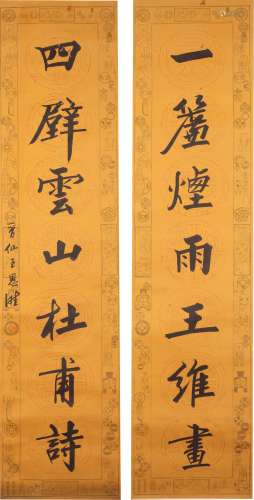 一簾煙雨王維畫
四壁雲山杜甫詩
仙王恩